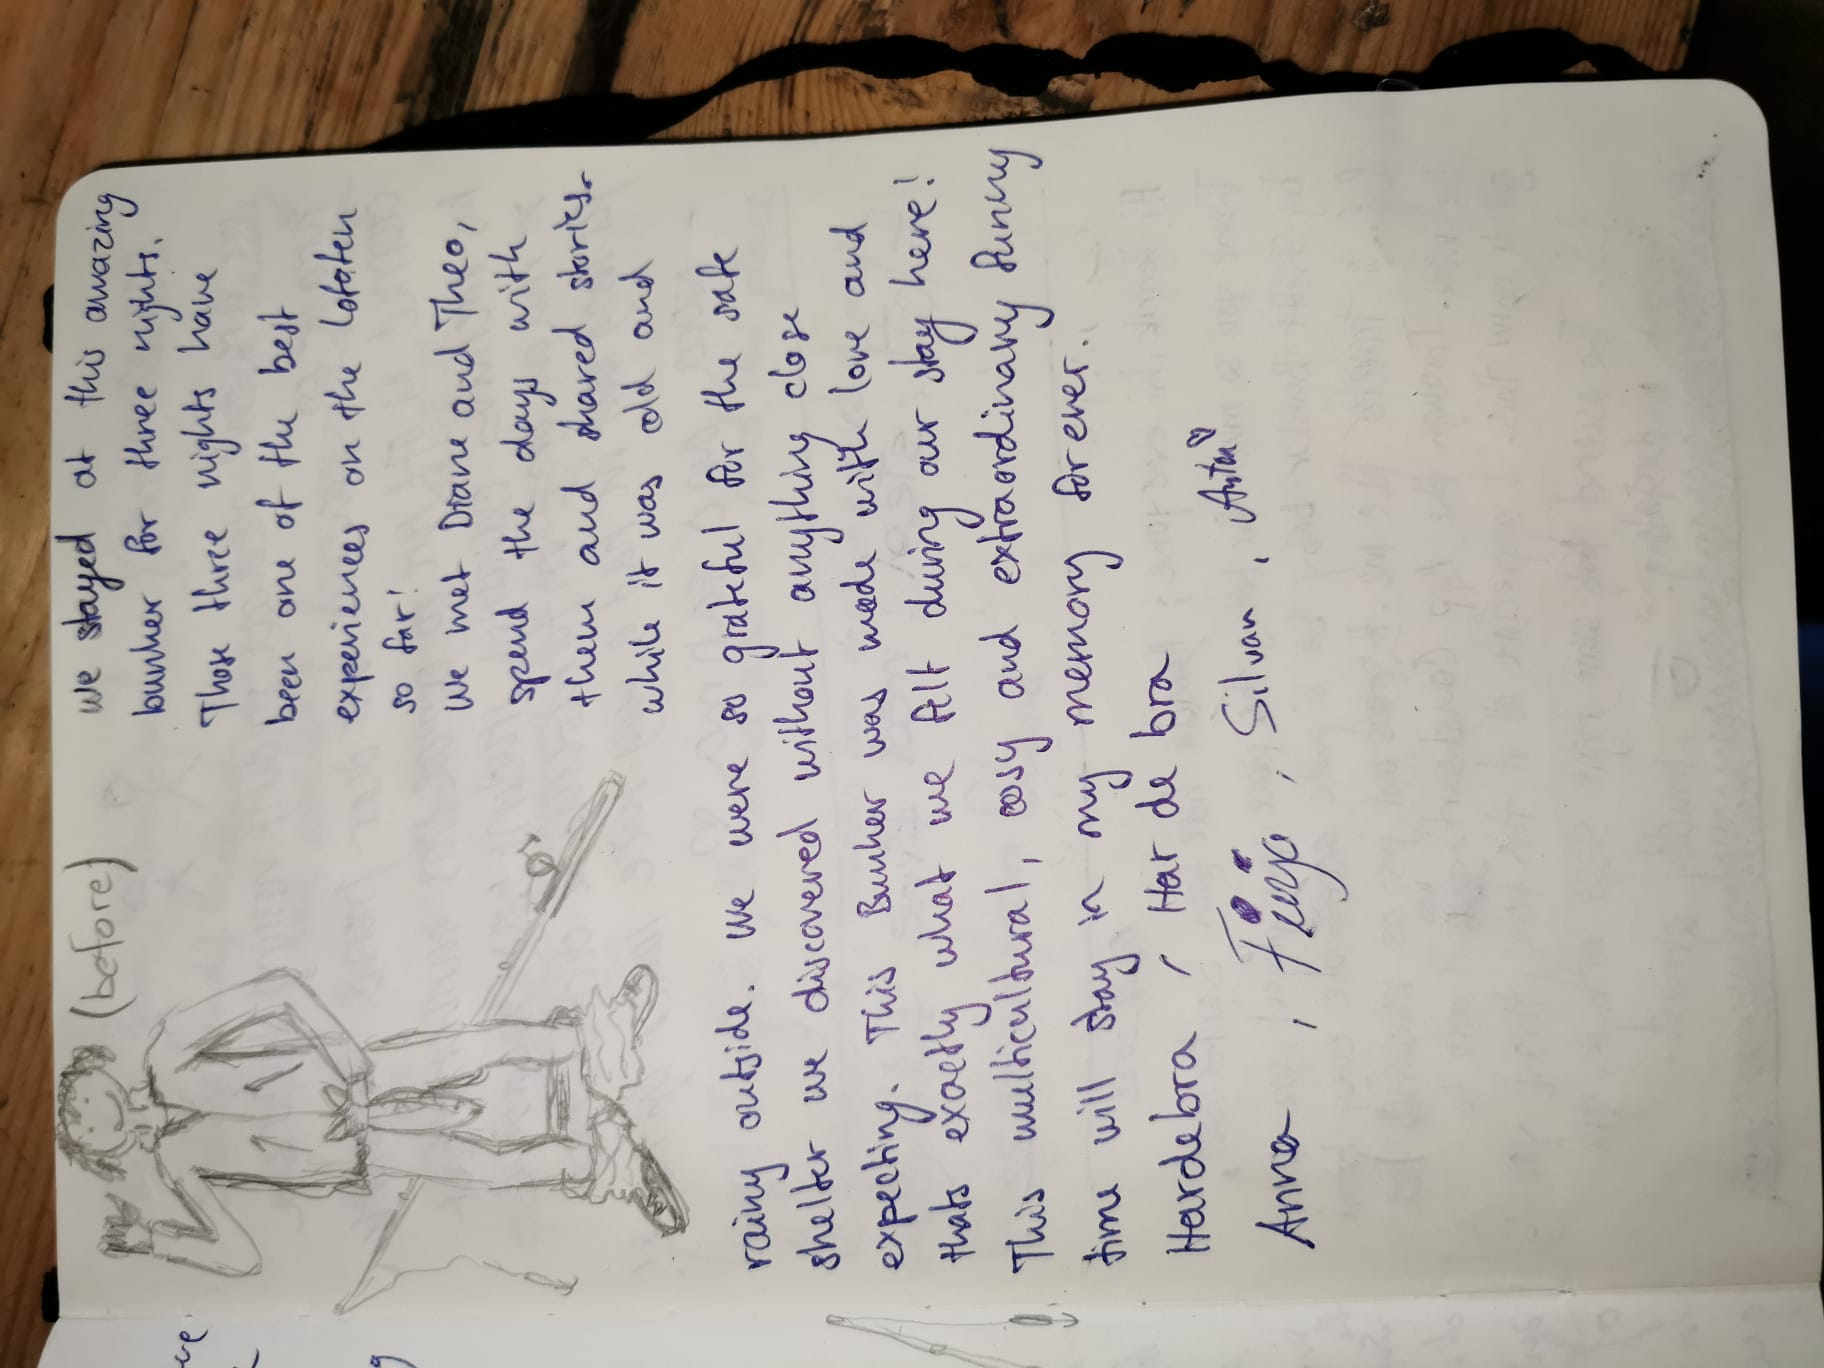 (before)
we stayed at this amazing
bunker for three nights.
Those three nights have
been one of the best
experiences on the Lofoten
so far!
we met Diane and Theo,
spend the days with
them and shared stories
while it was cold and
rainy outside. We were so grateful for the safe
shelter we discovered without anything close
expecting. This Bunker was made with love and
thats exactly what we felt during our stay here!
This multicultural, cosy and extraordinary funny
time will stay in my memory for ever.
Hardebra , Har de bra
Anna , Finja , Silvan ,